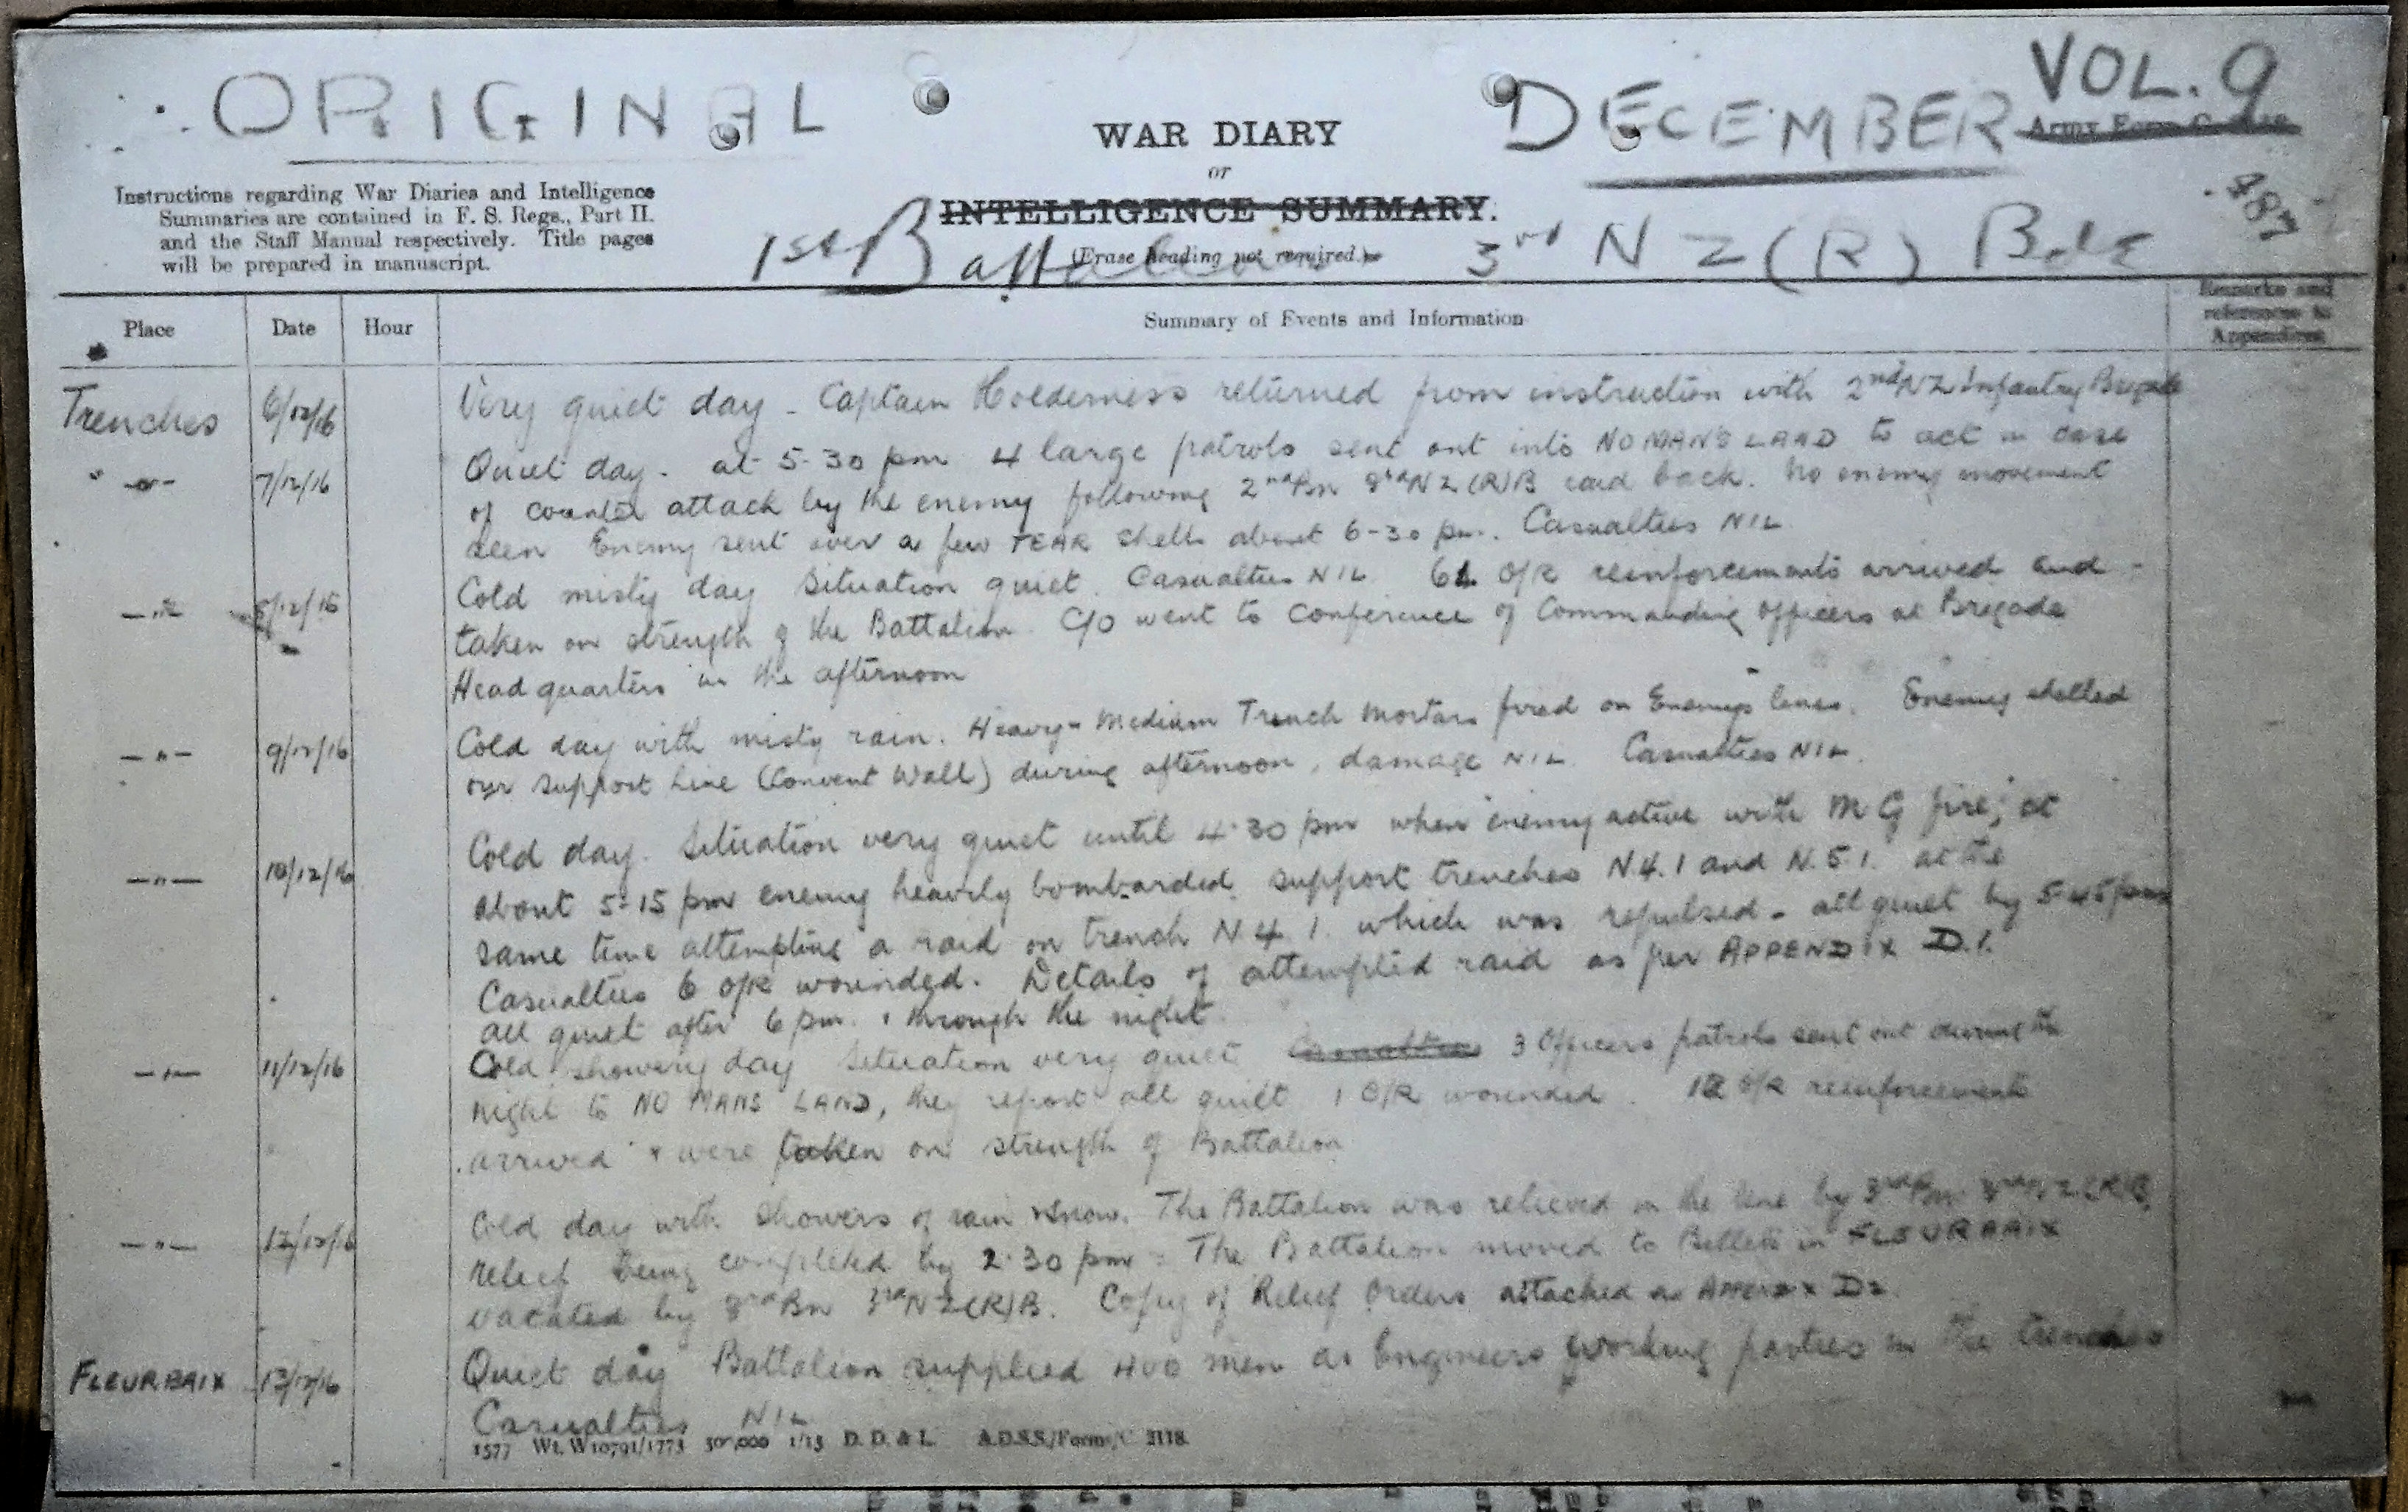 ORIGINAL
DECEMBER
VOL. 9
WAR DIARY
or
INTELLIGENCE SUMMARY.
(Erase heading not required.)
Army Form C.
487
Instructions regarding War Diaries and Intelligence
Summaries are contained in F. S. Regs., Part II.
and the Staff Manual respectively. Title pages
will be prepared in manuscript.
1st Battalion 3rd NZ (R) Bde
Place Date Hour Summary of Events and Information Remarks and
references to
Appendices
Trenches 6/12/16 Very quiet day - Captain Holderness returned from instruction with 2nd NZ Infantry Brigade
7/12/16 Quiet day. at 5-30 pm 4 large patrols sent out into NO MAN'S LAND to act in case
of counter attack by the enemy following 2nd Bn 3rd NZ (R)B raid back. No enemy movement
seen Enemy sent over a few TEAR shells about 6-30 pm. Casualties NIL
8/12/16 Cold misty day Situation quiet. Casualties NIL O/R reinforcements arrived and -
taken on strength of the Battalion. C/O went to Conference of Commanding Officers at Brigade
Head quarters in the afternoon
-"- 9/12/16 Cold day with misty rain. Heavy - Medium Trench Mortars fired on Enemy's lines. Enemy shelled
our support Line (Convent Wall) during afternoon, damage NIL. Casualties NIL.
-"- 10/12/16 Cold day. Situation very quiet until 4.30 pm when enemy active with MG fire; at
about 5-15 pm enemy heavily bombarded support trenches N.4.1 and N.5.1. at the
same time attempting a raid on trench N.4.1. which was repulsed - all quiet by 5-45 pm
Casualties 6 O/R wounded. Details of attempted raid as per APPENDIX D.1.
all quiet after 6 pm. & through the night.
-"- 11/12/16 Cold showery day Situation very quiet Casualties 3 Officers patrols sent out during the
night to NO MANS LAND, they report all quiet 1 O/R wounded. 12 O/R reinforcements
arrived & were taken on strength of Battalion
-"- 12/12/16 Cold day with showers of rain & snow. The Battalion was relieved in the line by 3rd Bn 3rd NZ(R)B,
relief being completed by 2.30 pm - The Battalion moved to Billets in FLEURBAIX
vacated by 3rd Bn 3rd NZ(R)B. Copy of Relief Orders attached as APPENDIX D2.
FLEURBAIX 13/12/16 Quiet day Battalion supplied 400 men as Engineers working parties in the trenches
Casualties NIL
1577 Wt. W10791/1773 500,000 1/15 D. D. & L. A.D.S.S./Forms/C. 2118.